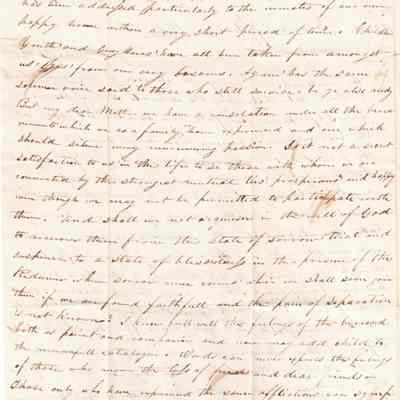 has been addressed particularly to the inmates of our own
happy home within a very short period of time. Childhood
Youth and Grey Hairs have all been taken from amongst
us! Yes! from our very bosoms. Again has the same
solemn voice said to those who still survive to be also ready
But my dear Mother we have a consolation under all the berea
vements which we as a family have experienced and one which
should silence every murmuring passion. Is it not a secret
satisfaction to us in this life to see those with whom we are
connected by the strongest mutual ties prosperous and happy
even though we may not be permitted to participate with
them. And shall we not acquiesce in the will of God
to remove them from this state of sorrow trial and
suspense to a state of blessedness in the presence of the
Redeemer where sorrow never comes where we shall soon join
them if we are found faithfull and the pain of separation
is not known? I know full well the feelings of the bereaved
both as parent and companion and now may add child to
the mournfull catalogue. Words can never express the feelings
of those who mourn the loss of near and dear friends
Those only who have experienced the same afflictions can